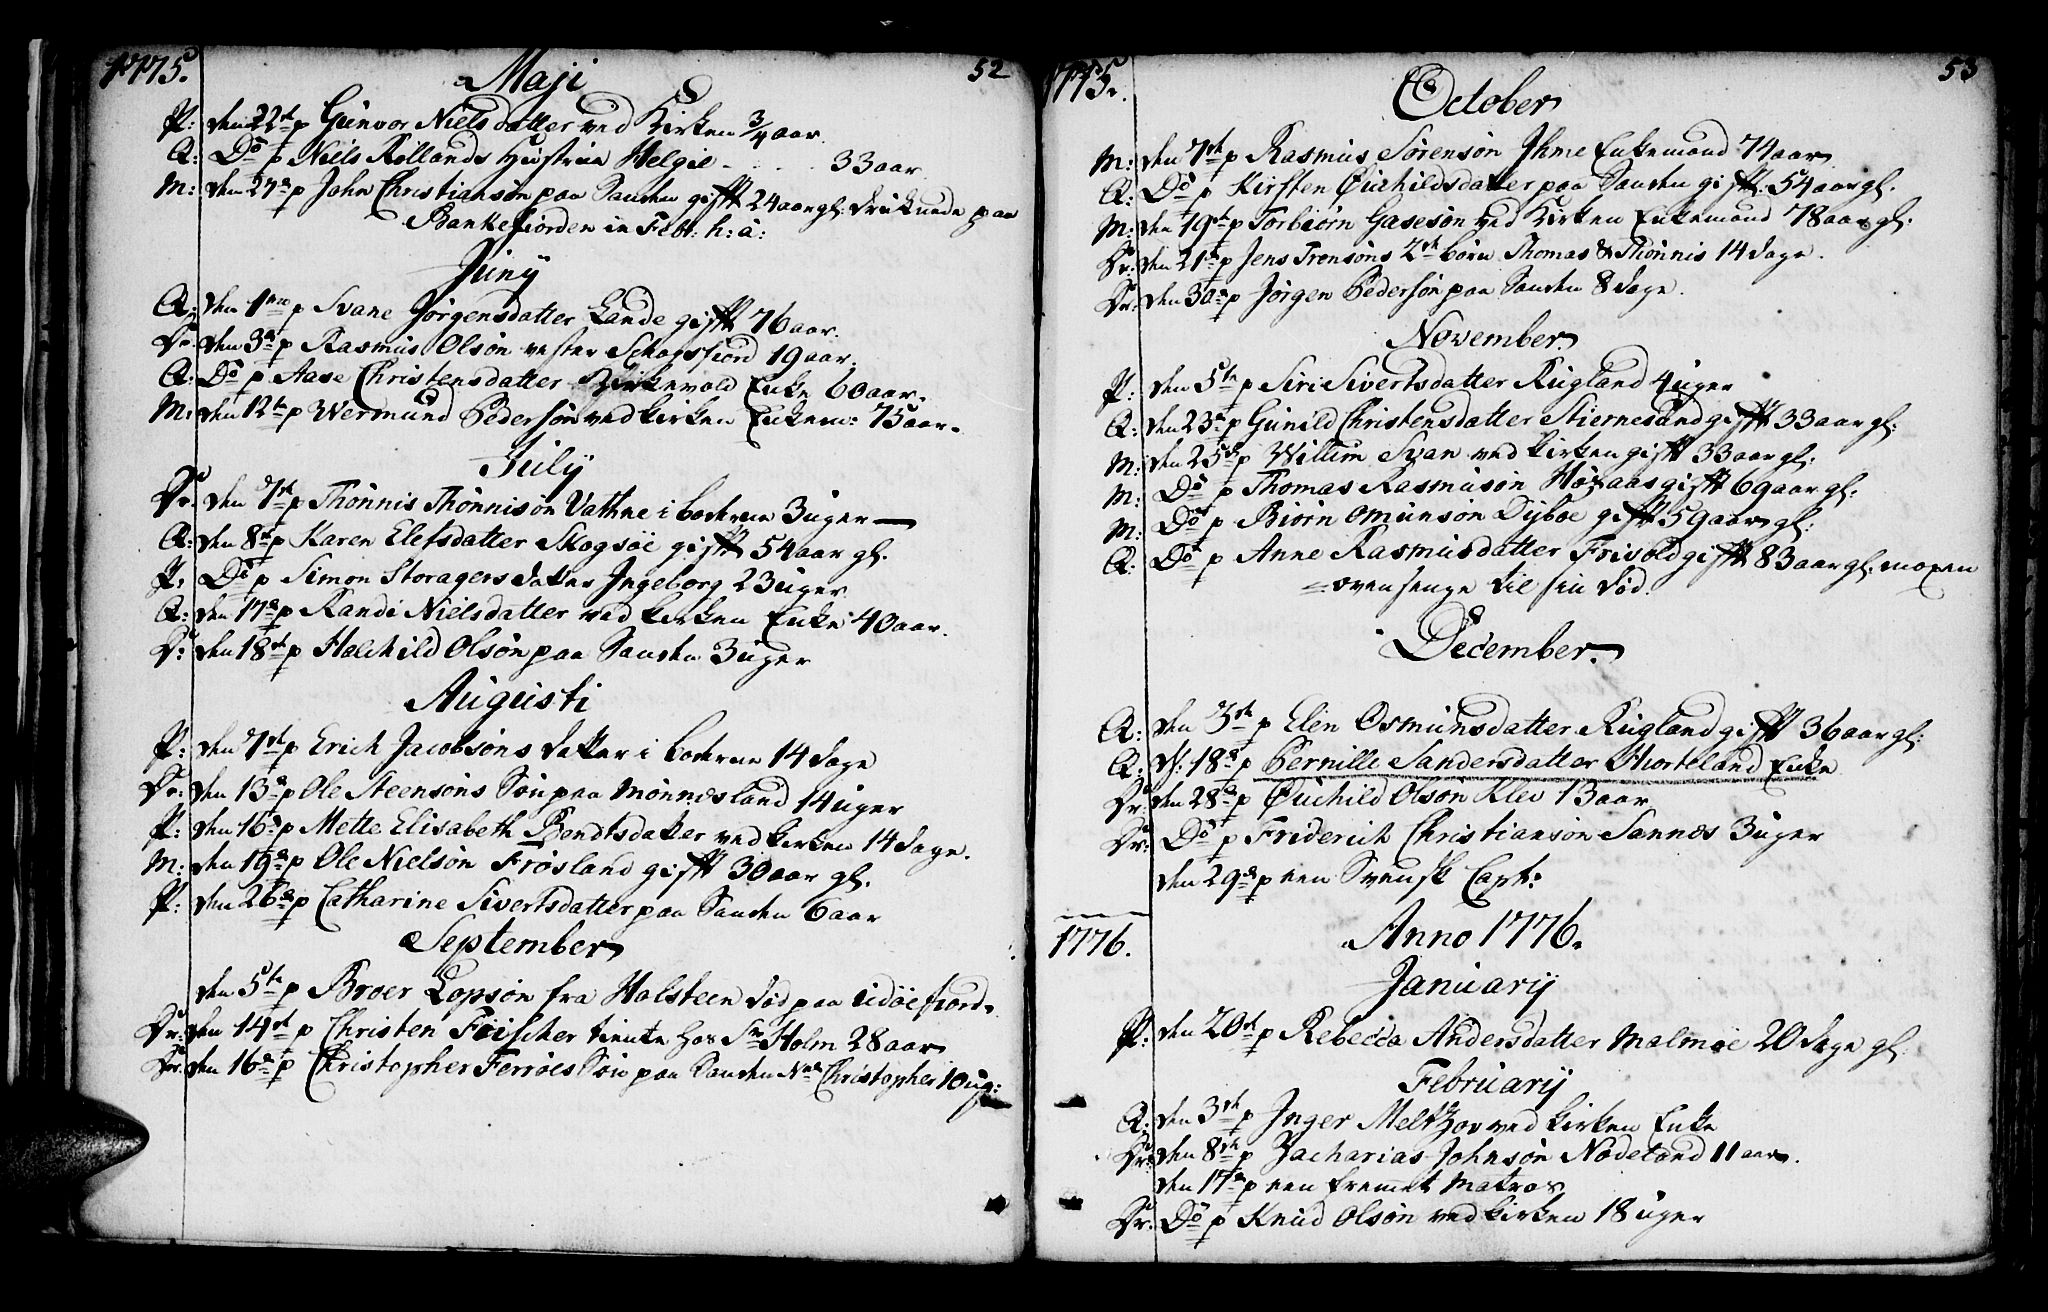 1775. Maji 52
P: den 22de p Gunvor Nielsdatter ved Kirken 3/4 aar
Q: Do p Niels Røllands Hustrue Helgie - . . 33 aar
M: den 27de p John Christiansøn paa Sanden gifft 24 aar gl: druknede paa
Bankefiorden in Febr: h: a:
Juny
Q: den 1me p Svane Jørgensdatter Lande gifft 76 aar.
Dr: den 3de p Rasmus Olsøn vester Schogsfiord 19 aar.
Q: Do p Aase Christensdatter Birkevold Enke 60 aar.
M: den 12te p Wermund Pedersøn ved Kirken Enkem: 75 aar.
July
Dr: den 7de p Thønnis Thønnisøn Vathne i boderne 3 uger
Q: den 8de p Karen Elefsdatter Skogsøe gifft 54 aar gl.
P: Do p Simon Storagers datter Ingeborg 23 uger
Q: den 17de p Randi Nielsdatter ved kirken Enke 40 aar.
Dr: den 18de p Halchild Olsøn paa Sanden 3 uger
Augusti
P: den 7de p Erich Jacobsøns datter i boderne 14 dage
Dr: den 13de p Ole Steensøns Søn paa Mønnesland 14 uger
P: den 16de p Mette Elisabeth Bendtsdatter ved kirken 14 dage.
M: den 19de p Ole Nielsøn Frøsland gifft 30 aar gl.
P: den 26de p Catharine Sivertsdatter paa Sanden 6 aar
September
den 5te p Broer Lopsøn fra Holsteen død paa Udøefiord.
Dr: den 14de p Christen Føischer tiente hos Sr Holm 28 aar
Dr: den 16de p Christopher Ferrøes Søn paa Sanden Nne Christopher 10 ug:
1775. October 53
M: den 7de p Rasmus Sørensøn Ihme Enkemand 74 aar
Q: Do p Kirsten Øuchildsdatter paa Sanden gifft 54 aar gl.
M: den 19de p Torbiørn Gasesøn ved Kirken Enkemand 78 aar gl:
Dr: den 21de p Jens Trensøns 2de børn Thomas & Thønnis 14 dage.
Dr: den 30de p Jørgen Pedersøn paa Sanden 8 dage.
November
P: den 5te p Siri Sivertsdatter Rugland 4 uger
Q: den 23de p Gunild Christensdatter Stiernesand gifft 33 aar gl:
M: den 25de p Willum Svan ved kirken gifft 33 aar gl:
M: Do p Thomas Rasmusøn Høyaas gifft 69 aar gl:
M: Do p Biørn Omunsøn Dybøe gifft 59 aar gl:
Q: Do p Anne Rasmusdatter Frivold gifft 83 aar gl:
ovensenge til sin død.
December.
Q: den 3de p Elen Osmunsdatter Rugland gifft 36 aar gl:
Q: d: 18de p Pernille Sandersdatter Hiorteland Enke
Dr: den 28de p Øuchild Olsøn Klev 13 aar
Dr: Do p Friderich Christiansøn Sannes 3 uger
den 29de p een Svensk Capt:
1776. Anno 1776.
January
P: den 20de p Rebecca Andersdatter Malmøe 20 dage gl.
February
Q: den 3de p Inger Meltzov ved kirken Enke
Dr: den 8de p Zacharias Johnsøn Nødeland 11 aar.
den 17de p een fremmet Matros
Dr: Do p Knud Olsøn ved kirken 18 uger